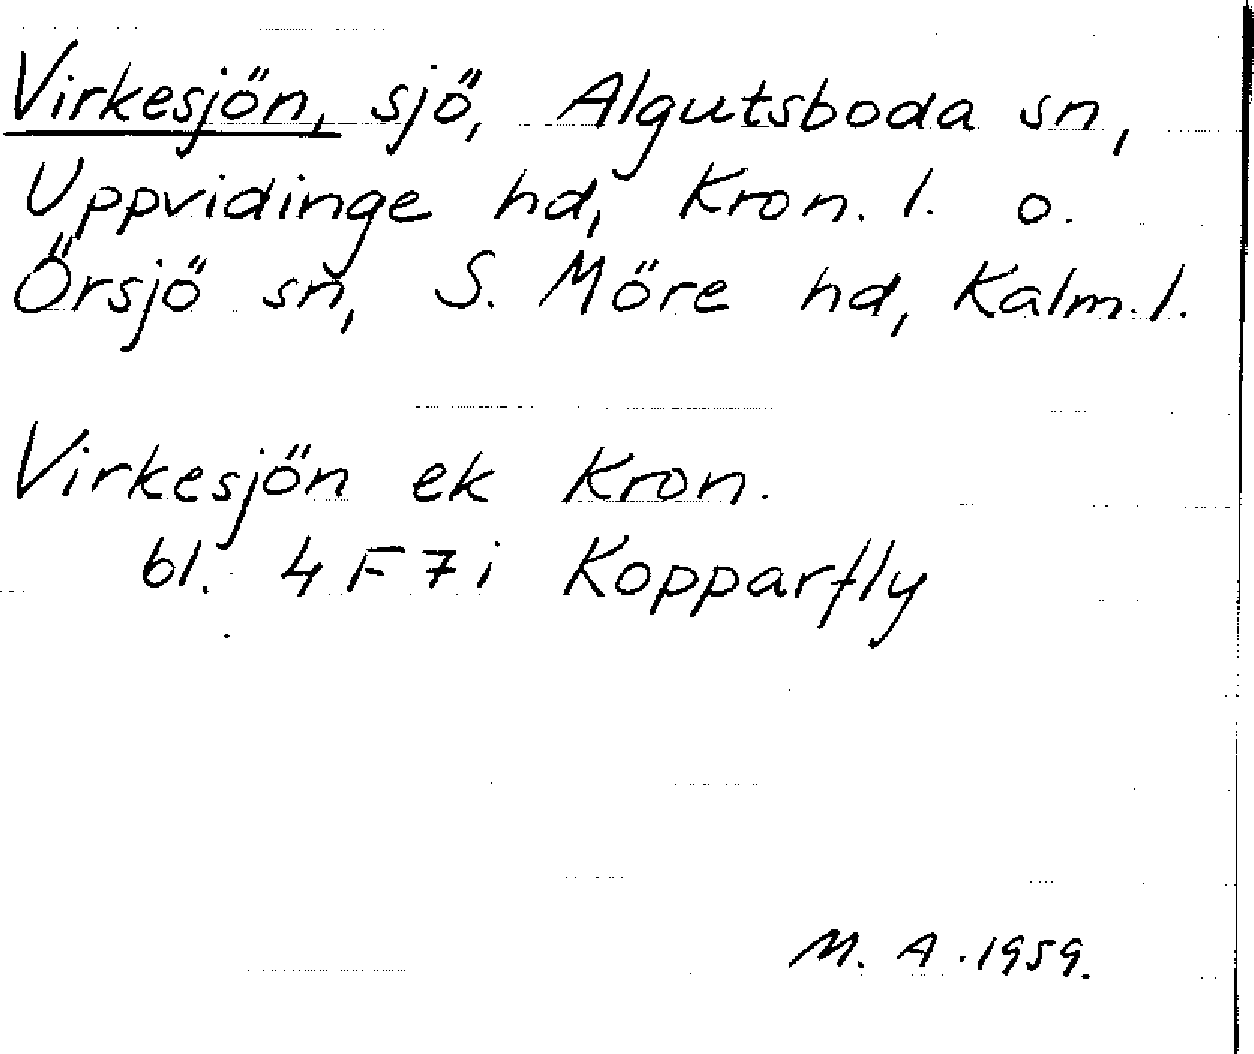 Virkesjön, sjö, Algutsboda sn,
Uppvidinge hd, Kron. l. o.
Örsjö sn, S. Möre hd, Kalm. l.
Virkesjön ek Kron.
bl. 4 F 7 i Kopparfly
M. A. 1959.